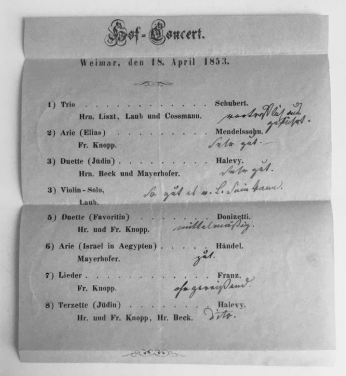 Hof-Concert.
Weimar, den 18. April 1853.
1) Trio . . . . . . . . . . . . . Schubert.
Hrn. Liszt, Laub und Cossmann. vortrefflich
2) Arie (Elias) . . . . . . . . . . Mendelssohn.
Fr. Knopp. Sehr gut.
3) Duette (Jüdin) . . . . . . . . . Halevy.
Hrn. Beck und Mayerhofer. Sehr gut.
3) Violin-Solo, so gut
Laub.
5) Duette (Favoritin) . . . . . . . . Donizetti.
Hr. und Fr. Knopp. mittelmässig.
6) Arie (Israel in Aegypten) . . . . . Händel.
Mayerhofer. gut.
7) Lieder . . . . . . . . . . . . Franz.
Fr. Knopp.
8) Terzette (Jüdin) . . . . . . . . Halevy.
Hr. und Fr. Knopp, Hr. Beck. Dito.